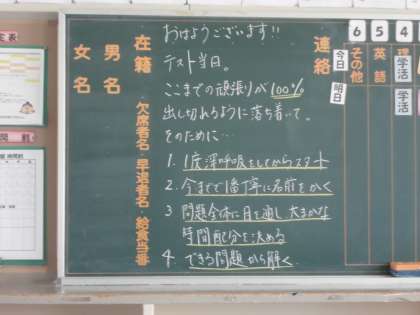 おはようございます!!
テスト当日。
ここまでの頑張りが100%
出し切れるように落ち着いて。
そのために…
1. 1度深呼吸をしてからスタート
2. 今までで1番丁寧に名前をかく
3 問題全体に目を通し大まかな
時間配分を決める
4. できる問題から解く
在籍
男 名
女 名
欠席者名・早退者名・給食当番
連絡
今日
明日
6
5
4
その他
英語
学活
学活